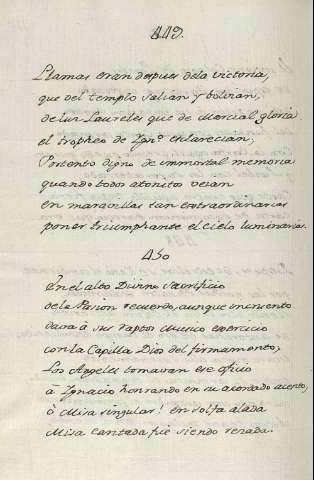 449.
Llamas eran despues dela victoria,
que del templo salian y bolvian,
de sus Laureles que de Marcial gloria
el tropheo de Ign.º esclarecian,
Portento digno de immortal memoria
quando todos atonitos veian
en maravillas tan extraordinarias
poner triumphante el cielo luminarias.
450
En el alto Divino Sacrificio
de la Pasion recuerdo, aunque incruento
dava à sus raptos Musico exercicio
con la Capilla Dios del firmamento,
Los Angeles tomavan ese oficio
à Ignacio honrando en su acordado acento,
ò Misa singular! en solfa alada
Misa cantada fue siendo rezada.